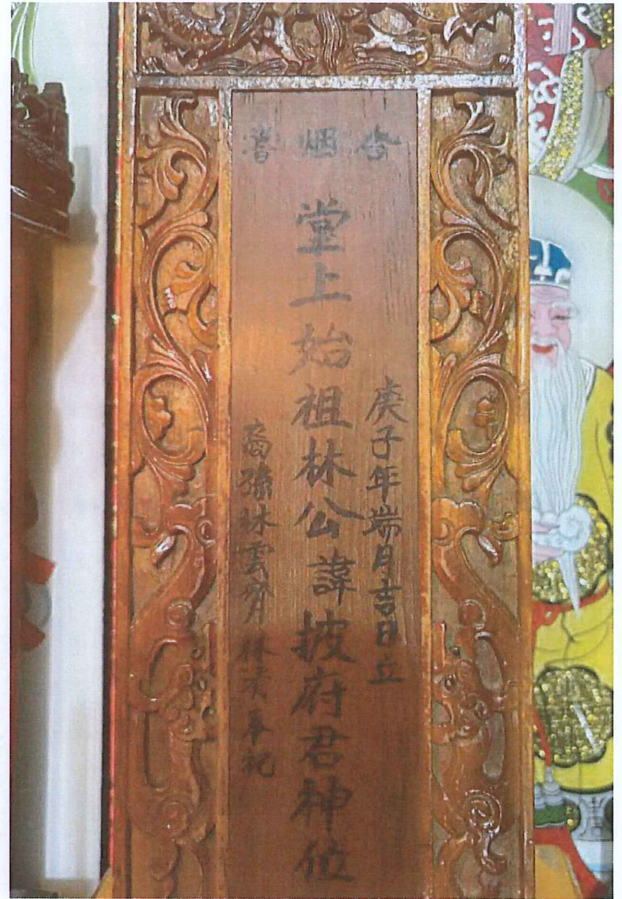 烟普
庚子年端月吉日立
堂上始祖林公諱披府君神位
裔孫林雲林奉祀